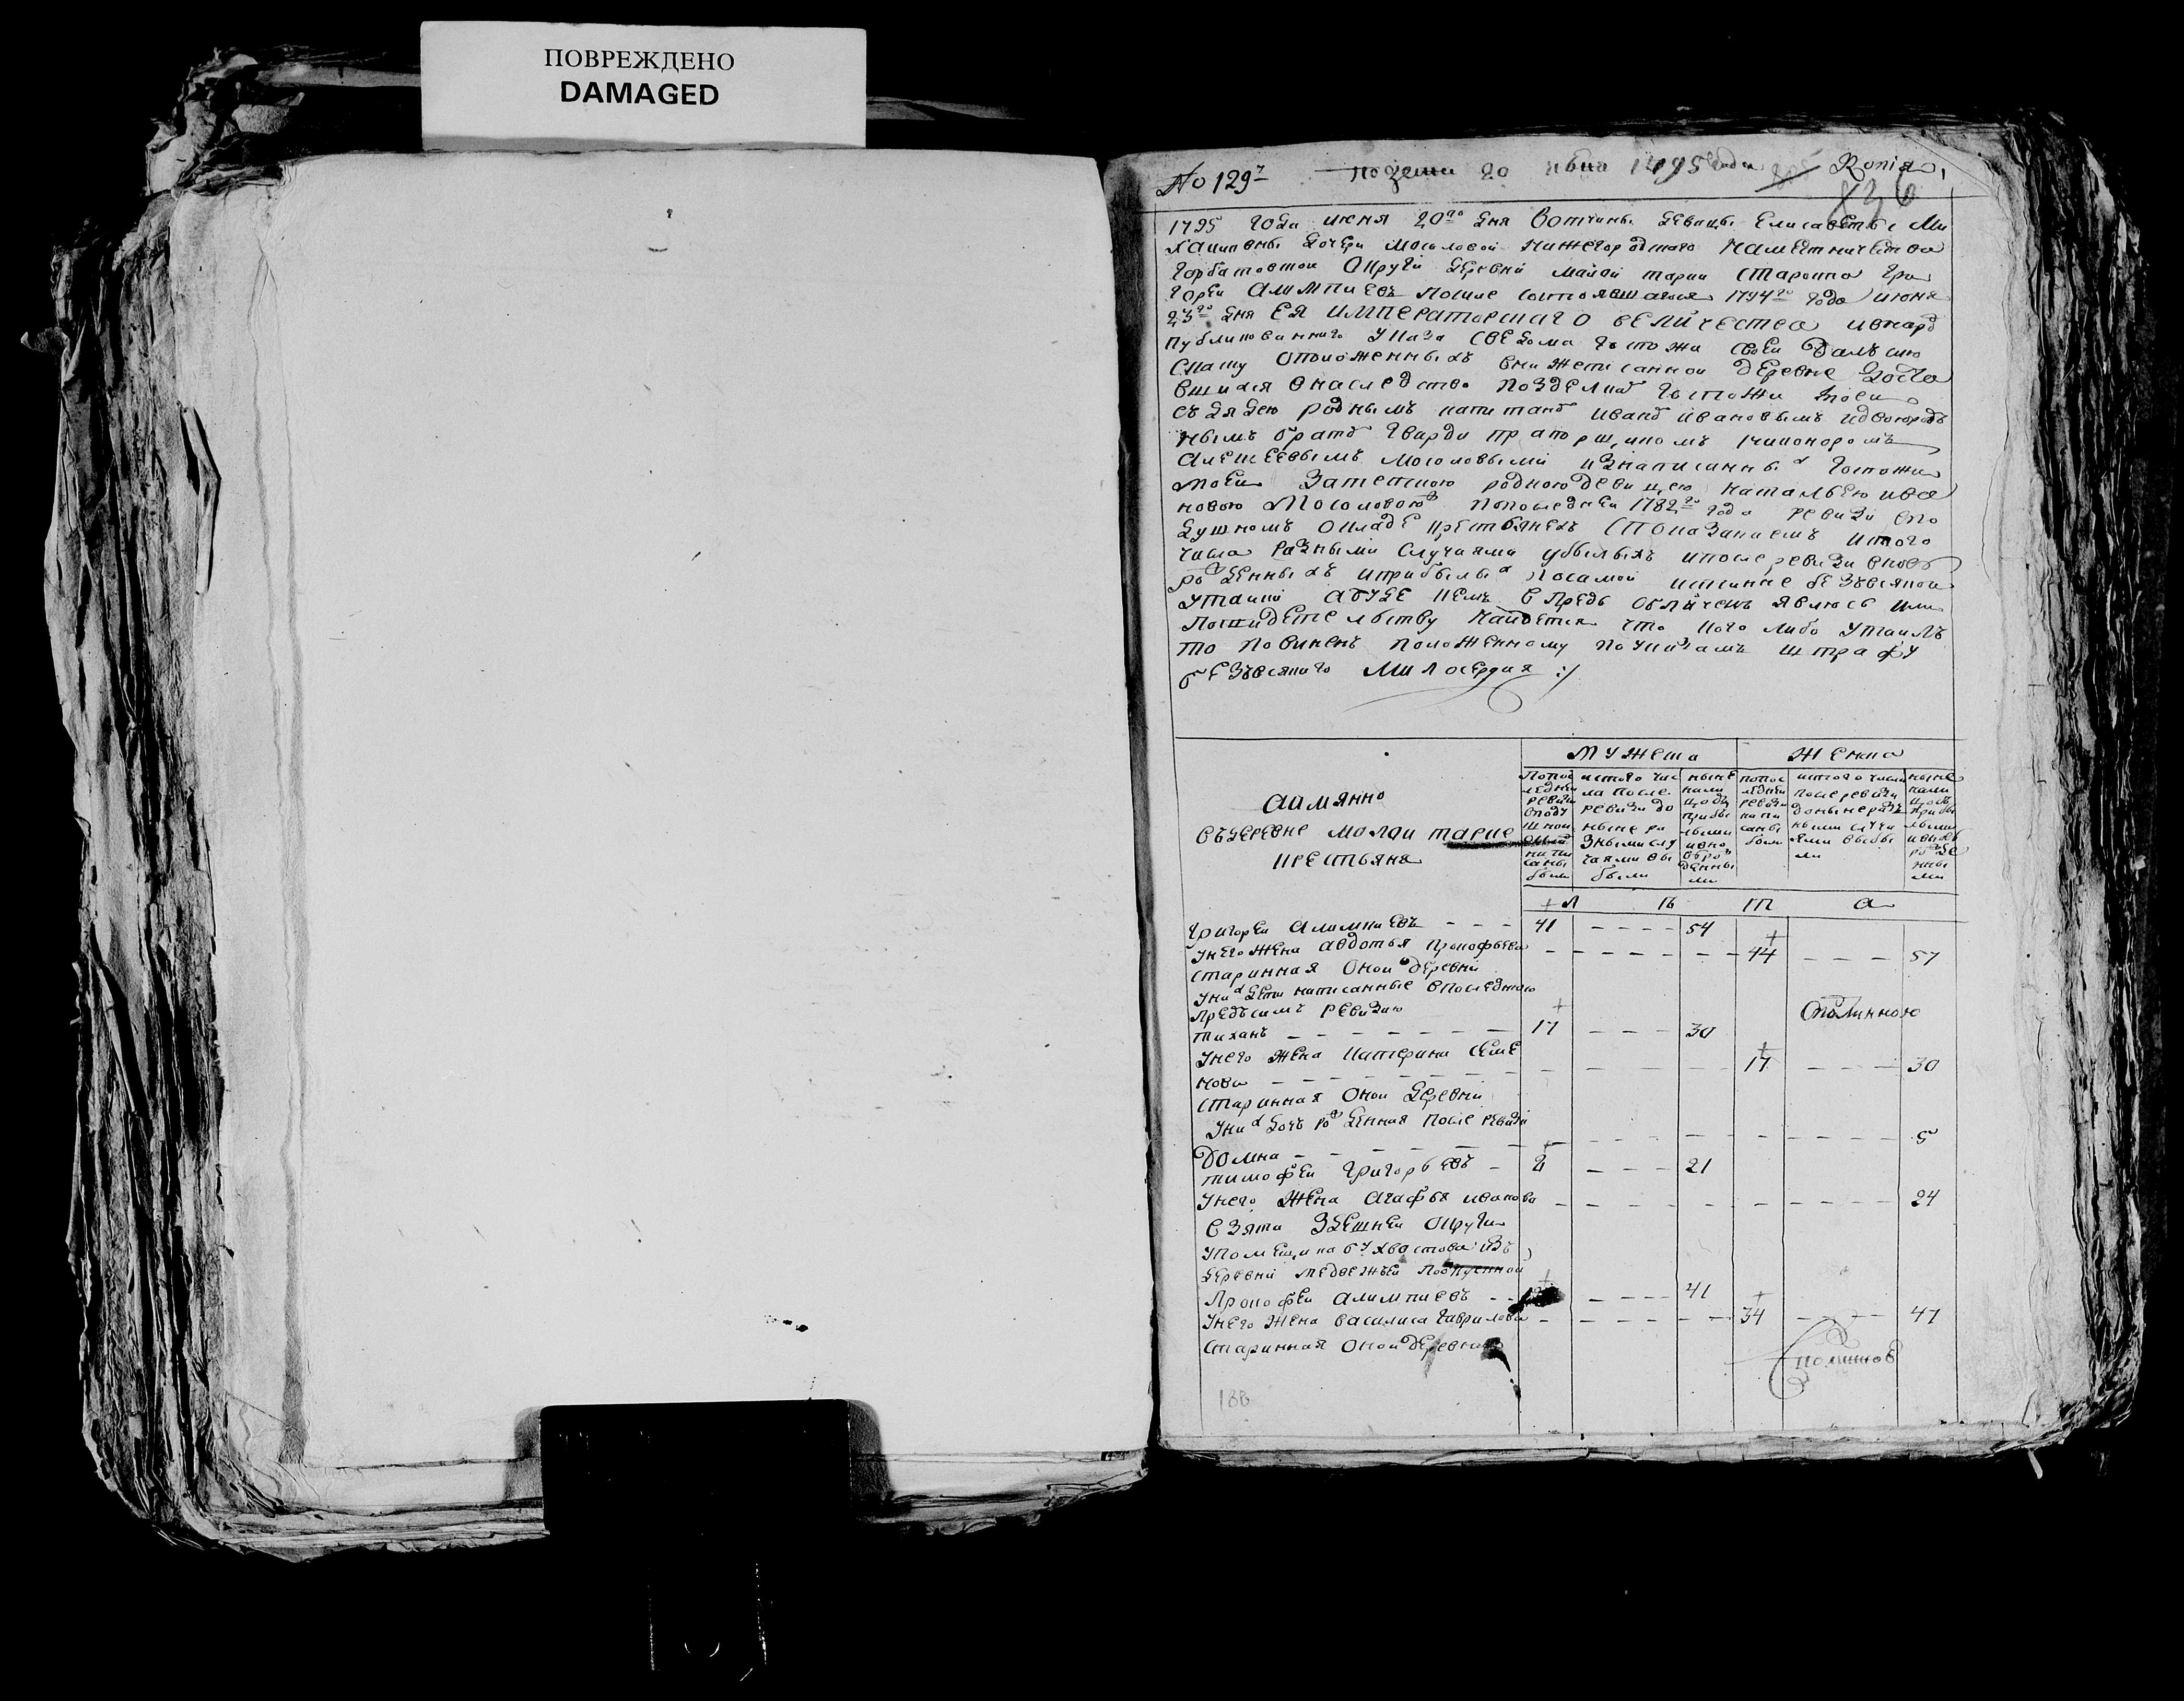 ПОВРЕЖДЕНО
DAMAGED
No 129 20 1795 года Копія
836
1795 года июня 20го дня вотчины девицы Елисаветы Ми
хаиловны дочери Мосоловой Нижегородского наместничества
Горбатовской округи деревни малой тарки староста Гри
горей Алимпиевъ после состоявшагося 1794го года июня
23го дня ЕЯ ИМПЕРАТОРСКАГО ВЕЛИЧЕСТВА
публикованного указа сведома гспожи своей далъ сию
скаску оположенныхъ деревне
вшихся внаследство поздел гспожи моей
съ дядею роднымъ капитаномъ Иваномъ Ивановымъ идвоюрод
нымъ братомъ гвардии прапорщикомъ Никоноромъ
Алексеевымъ Мосоловыми инаписанныхъ госпожи
моей затеткою родною девицею Натальею Ива
новою Мосоловою попоследней 1782го года ревизи впо
душномъ окладе крестьянехъ споказаниемъ истого
числа разными случаями убылыхъ ипосле ревизи вновь
рожденныхъ иприбылыхъ посамой истинне безъвсякой
утайки абуде кемъ впредь обличенъ явлюсь или
посвидетельству найдется что кого либо утаилъ
то повиненъ положенному поуказамъ штрафу
безъвсякаго милосердия :/
Мужеска Женска
аимянно
въдеревне малой тарке
крестьяне
Попос
ледней
ревизи
вподу
шной
оклад
напи
саны
были
истого чис
ла после
ревизи до
ныне ра
зными слу
чаями вы
были
ныне
нали
цо съ
прибы
лыми
ивно
вброж
денны
ми
попос
ледней
ревизи
напи
саны
были
истого числа
после ревизи
доныне разъ
ными случа
ями выбы
ли
ныне
нали
цо съ
прибы
лыми
ивновь
рожде
нны
ми
Л Ѣ Т А
Григорей Алимпиевъ - - - 41 - - - - 54
Унего жена Авдотья Прокофьева - - - - - - - - 44 - - - 57
старинная оной деревни
Унихъ дети написанные впоследнюю
предъсимъ ревизию
Тихонъ - - - - - - - 17 - - - 30
Унего жена Катерина Семе
нова - - - - - - - - - - - - 17 - - - - 30
старинная оной деревни
Унихъ дочь рожденная после ревизи
Домна - - - - - - - - - - - - - - - - 5
Тимофей Григорьевъ - 8 - - - - 21
Унего жена Агафья Иванова - - - - - - - - - - - - - 24
взята здешней округи
упомещика Бухвостова изъ
деревни
Прокофей Алимпиевъ - - - - - - 41
Унего жена Василиса Гаврилова - - - - - - - 34 - - - 47
старинная оной деревни
188